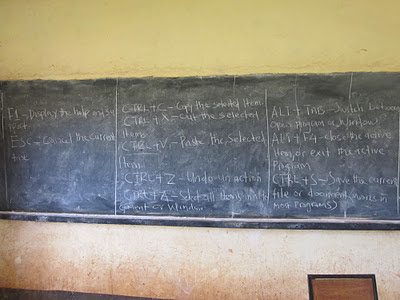 F1 - Display the help
ESC - Cancel the current
CTRL + C - Copy the selected item
CTRL + X - Cut the selected
item
CTRL + V - Paste the selected
item
CTRL + Z - Undo an action
CTRL + A - Select all items in a
ment or Window
ALT + TAB - Switch between
open program or Window
ALT + F4 - close the active
item, or exit the active
Program
CTRL + S - Save the current
file or document (works in
most programs)